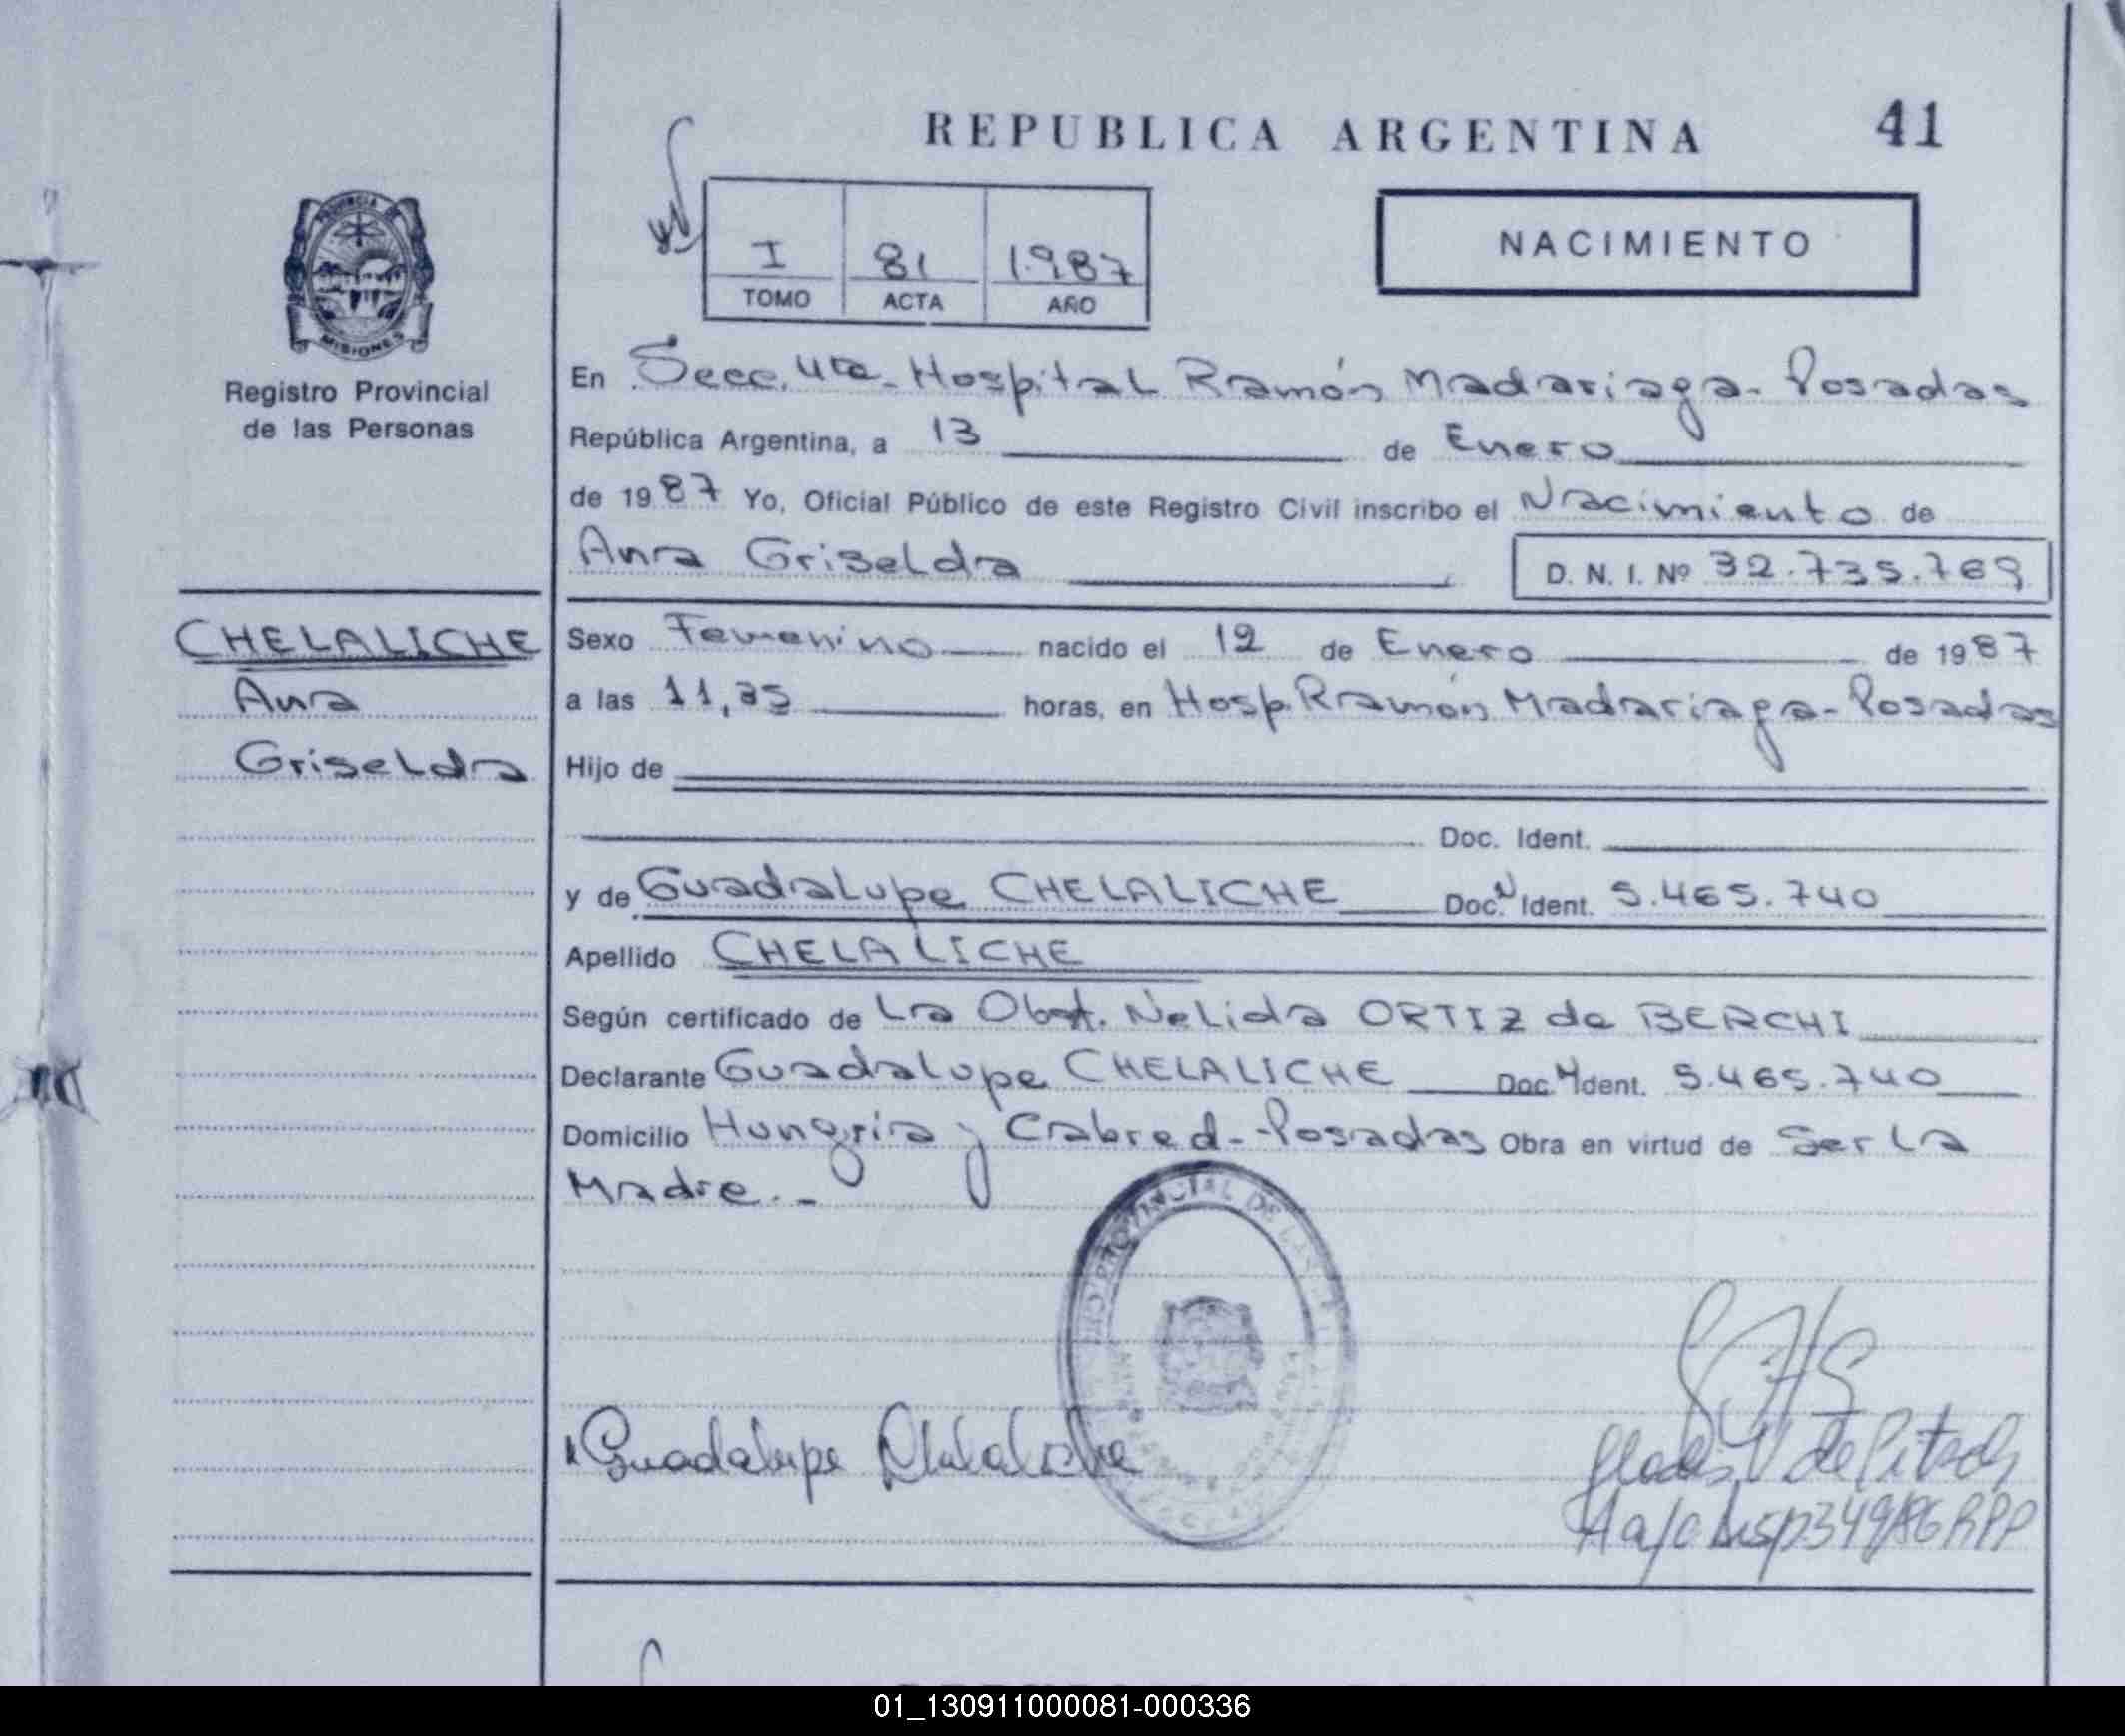 REPUBLICA ARGENTINA 41
NACIMIENTO
I 81 1.987
TOMO ACTA AÑO
PROVINCIA DE
MISIONES
Registro Provincial
de las Personas
En Secc. 4ta. Hospital Ramón Madariaga - Posadas
República Argentina, a 13 de Enero
de 1987 Yo, Oficial Público de este Registro Civil inscribo el Nacimiento de
Ana Griselda D. N. I. Nº 32.735.769
CHELALICHE
Ana
Griselda
Sexo Femenino nacido el 12 de Enero de 1987
a las 11,35 horas, en Hosp. Ramón Madariaga - Posadas
Hijo de
Doc. Ident.
y de Guadalupe CHELALICHE Doc. N Ident. 5.465.740
Apellido CHELALICHE
Según certificado de La Obst. Nelida ORTIZ de BERCHI
Declarante Guadalupe CHELALICHE Doc. Ident. 5.465.740
Domicilio Hungria y Cabred - Posadas Obra en virtud de Ser la
Madre. -
PROVINCIAL DE LAS
Guadalupe Chelaliche
01_130911000081-000336